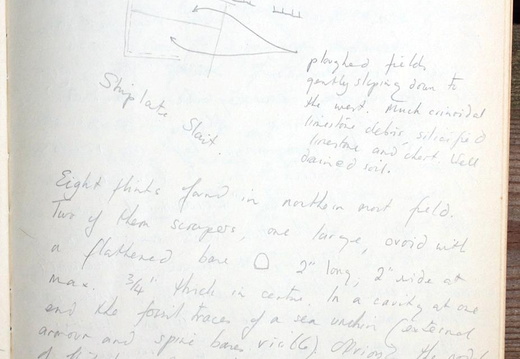 ploughed fields
gently sloping down to
the west. Much crinoidal
limestone debris silicified
limestone and chert. Well
drained soil.
Shiplate
Slait.
Eight flints found in northern most field.
Two of them scrapers, one large, ovoid with
a flattened base 2" long, 2" wide at
max. 3/4" thick in centre. In a cavity at one
end the fossil traces of a sea urchin (external
armour and spine bases visible)